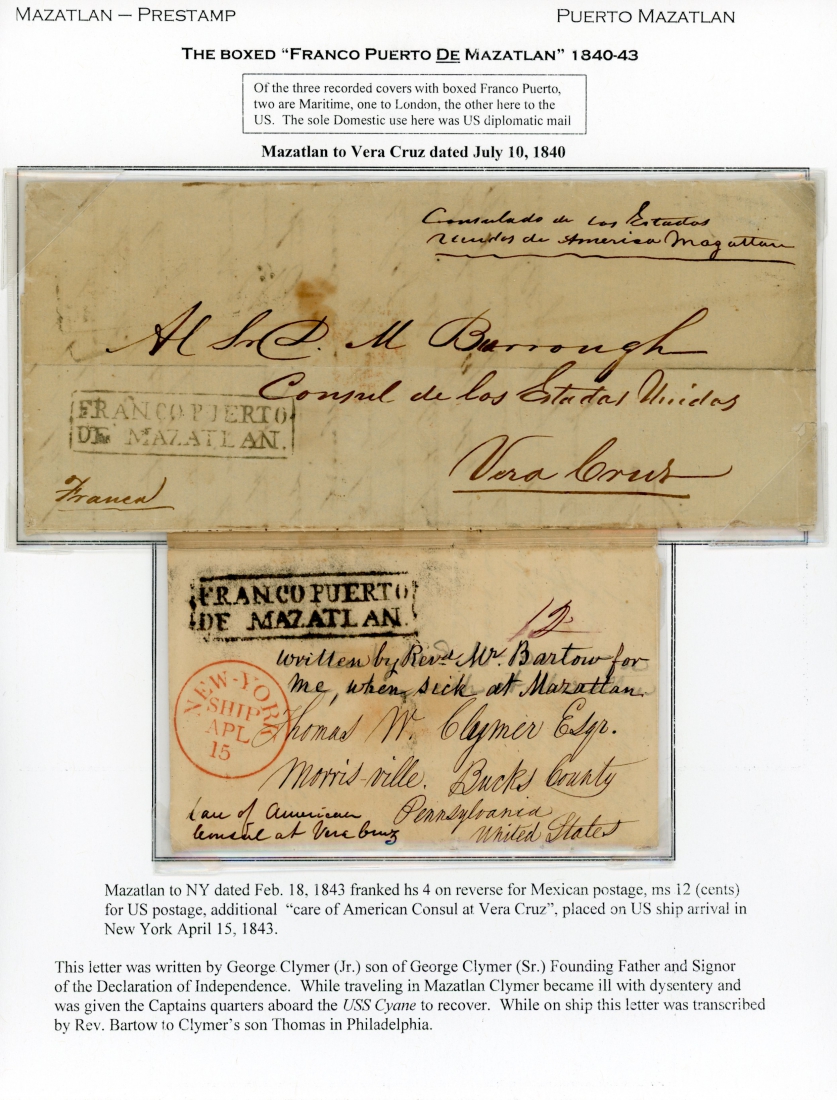 MAZATLAN – PRESTAMP
PUERTO MAZATLAN
THE BOXED “FRANCO PUERTO DE MAZATLAN” 1840-43
Of the three recorded covers with boxed Franco Puerto,
two are Maritime, one to London, the other here to the
US. The sole Domestic use here was US diplomatic mail
Mazatlan to Vera Cruz dated July 10, 1840
Consulado de los Estados
Unidos de America Mazattan
Al Sr. D. M Burrough
Consul de los Estados Unidos
FRANCO PUERTO
DE MAZATLAN.
Vera Cruz
Franca
FRANCO PUERTO
DE MAZATLAN.
12
written by Revd. Mr. Bartow for
me, when sick at Mazattan.
NEW-YORK
SHIP
APL
15
Thomas W. Clymer Esqr.
Morris-ville. Bucks County
Pennsylvania
United States
Care of American
Consul at Vera Cruz
Mazatlan to NY dated Feb. 18, 1843 franked hs 4 on reverse for Mexican postage, ms 12 (cents)
for US postage, additional “care of American Consul at Vera Cruz”, placed on US ship arrival in
New York April 15, 1843.
This letter was written by George Clymer (Jr.) son of George Clymer (Sr.) Founding Father and Signor
of the Declaration of Independence. While traveling in Mazatlan Clymer became ill with dysentery and
was given the Captains quarters aboard the USS Cyane to recover. While on ship this letter was transcribed
by Rev. Bartow to Clymer’s son Thomas in Philadelphia.